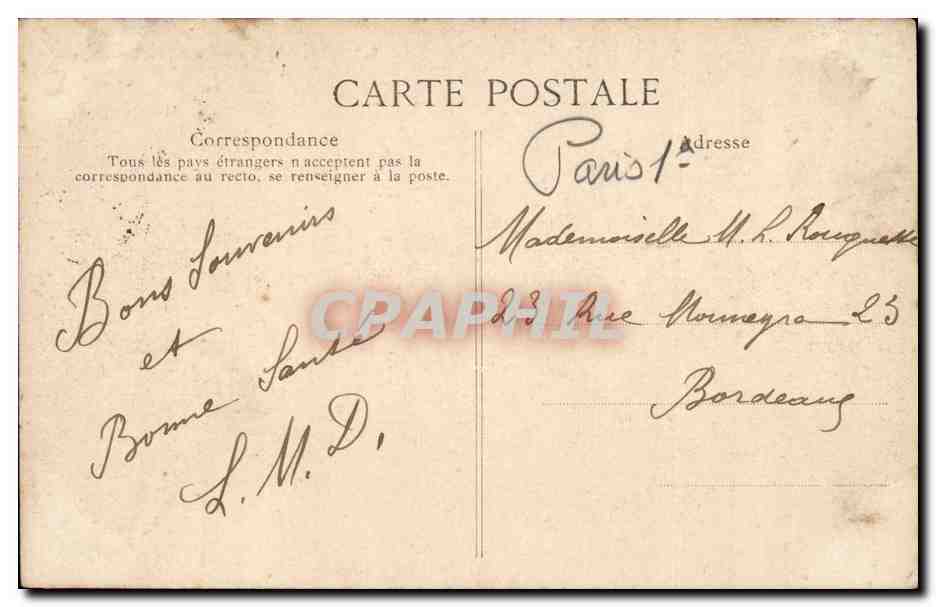 CARTE POSTALE
Correspondance
Tous les pays étrangers n'acceptent pas la
correspondance au recto, se renseigner à la poste.
Bons Souvenirs
et
Bonne Santé
L. M. D.
Adresse
Paris 1ª
Mademoiselle M. L. Rouquette
23 Rue Mouneyra 23
Bordeaux
CPAPHIL